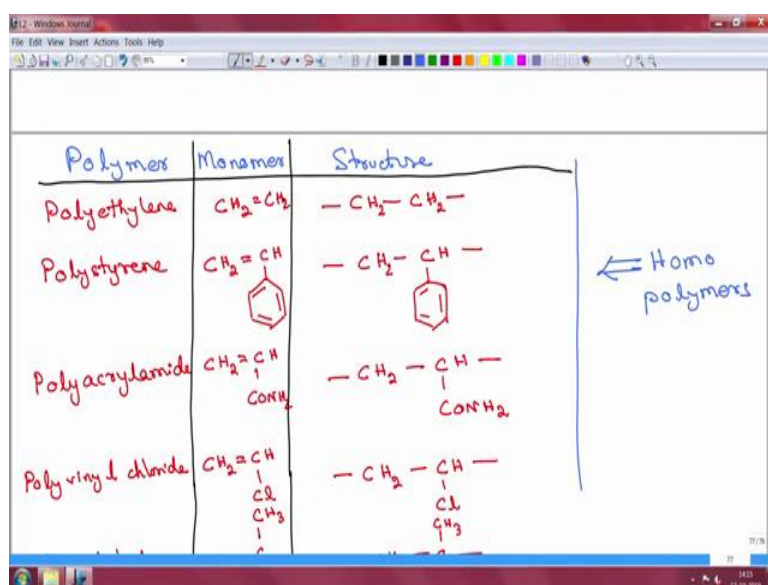 L2 - Windows Journal
File Edit View Insert Actions Tools Help
Polymer Monomer Structure
Polyethylene CH₂=CH₂ — CH₂— CH₂—
Polystyrene CH₂=CH — CH₂— CH —
Homo
polymers
Polyacrylamide CH₂=CH — CH₂ — CH —
CONH₂ CONH₂
Poly vinyl chloride CH₂=CH — CH₂ — CH —
Cl Cl
CH₃ CH₃
77/79
77
14:15